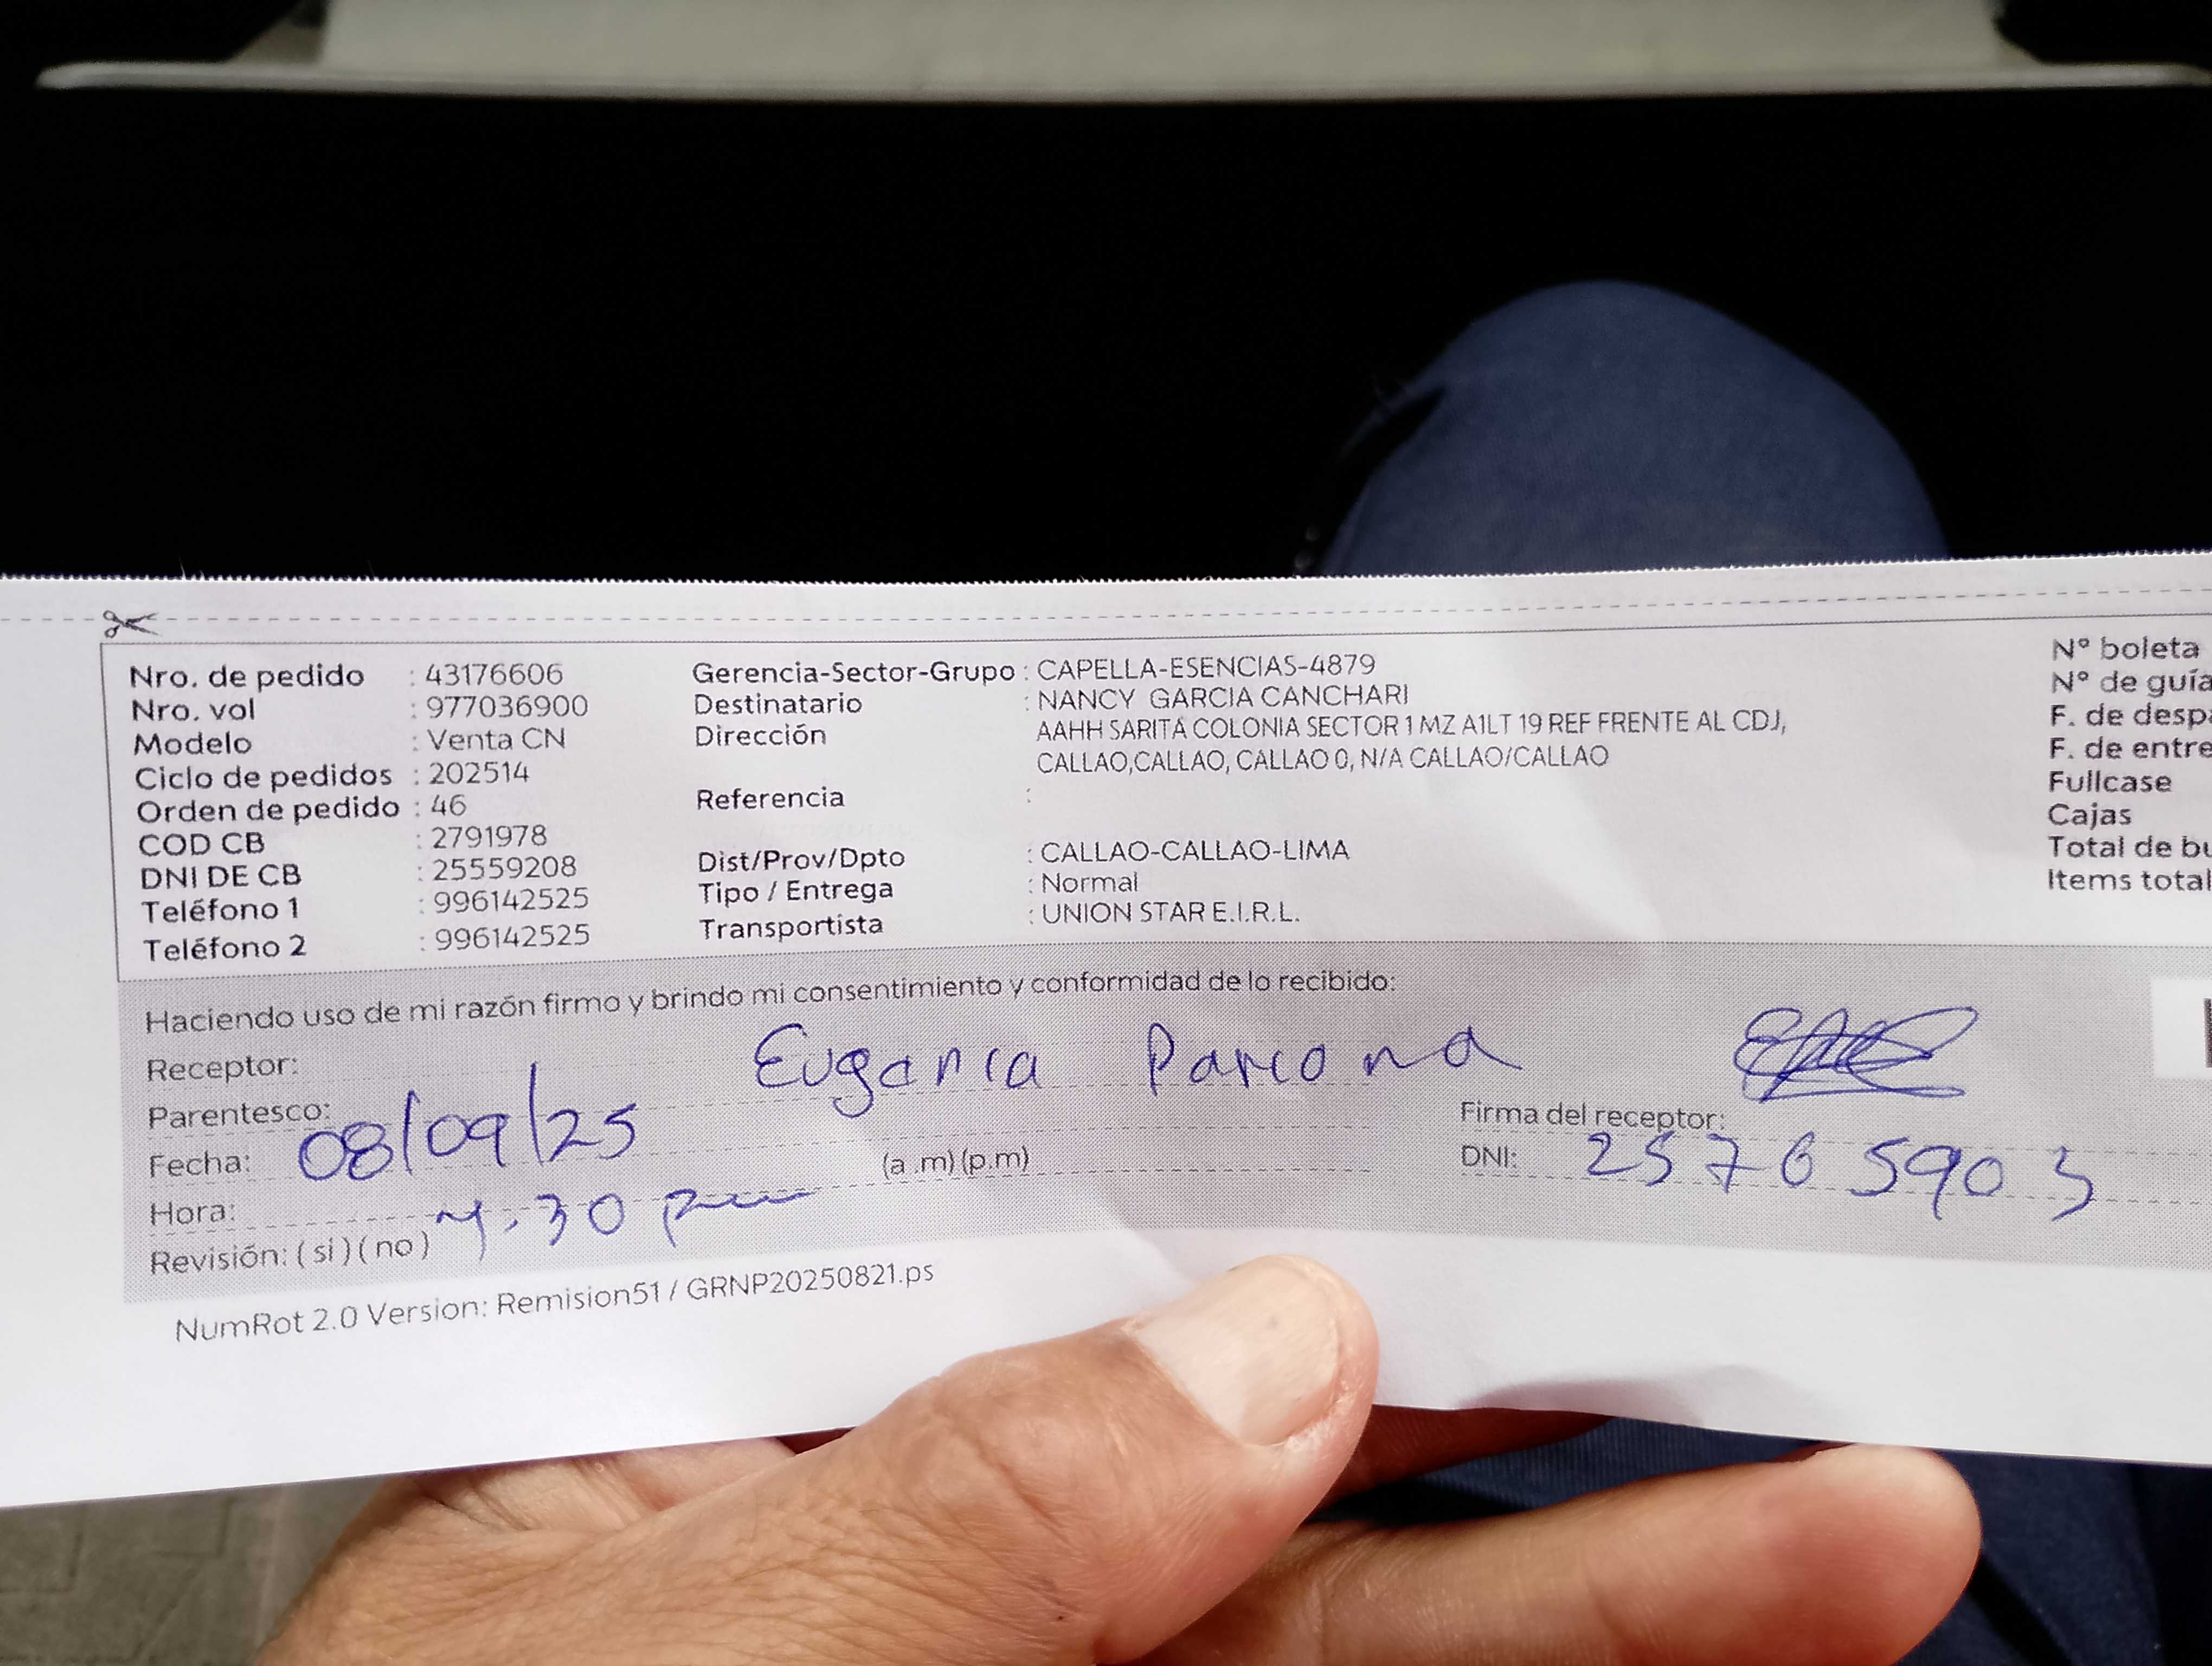 Nro. de pedido : 43176606
Nro. vol : 977036900
Modelo : Venta CN
Ciclo de pedidos : 202514
Orden de pedido : 46
COD CB : 2791978
DNI DE CB : 25559208
Teléfono 1 : 996142525
Teléfono 2 : 996142525
Gerencia-Sector-Grupo : CAPELLA-ESENCIAS-4879
Destinatario : NANCY GARCIA CANCHARI
Dirección AAHH SARITA COLONIA SECTOR 1 MZ A1LT 19 REF FRENTE AL CDJ,
CALLAO,CALLAO, CALLAO 0, N/A CALLAO/CALLAO
Referencia :
Dist/Prov/Dpto : CALLAO-CALLAO-LIMA
Tipo / Entrega : Normal
Transportista : UNION STAR E.I.R.L.
N° boleta
N° de guía
F. de desp
F. de entre
Fullcase
Cajas
Total de bu
Items total
Haciendo uso de mi razón firmo y brindo mi consentimiento y conformidad de lo recibido:
Receptor: Eugenia Parcona
Parentesco:
Fecha: 08/09/25 (a .m) (p.m)
Hora: 30 pm
Revisión: ( si ) ( no )
Firma del receptor:
DNI: 25765903
NumRot 2.0 Version: Remision51 / GRNP20250821.ps